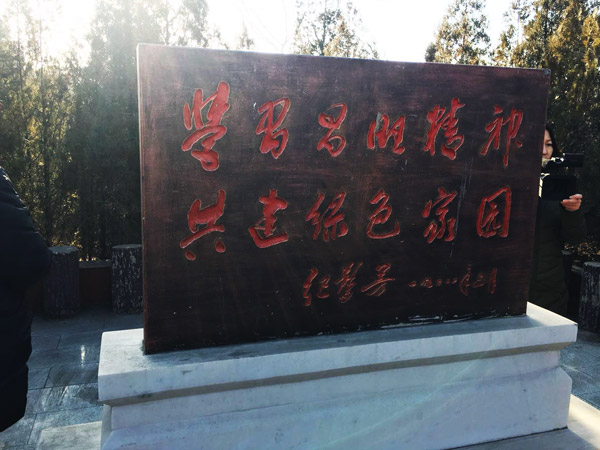 学习昌旺精神
共建绿色家园